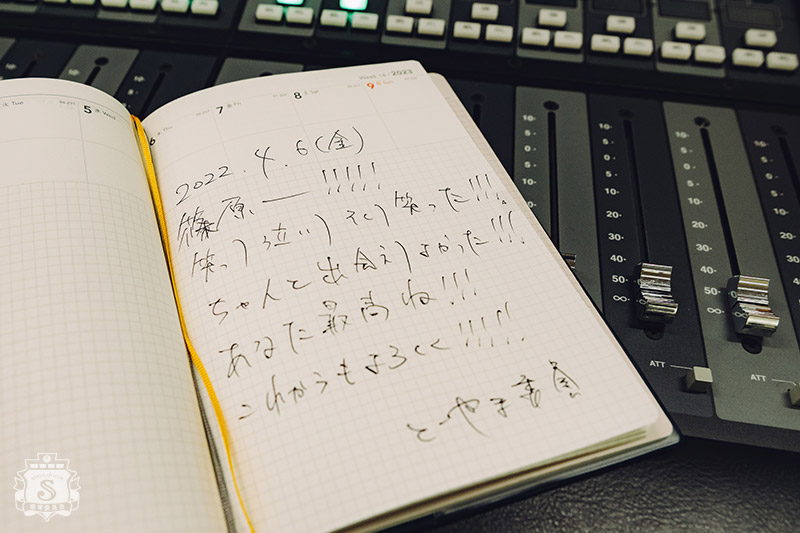 Week 14 / 2023
火 Tue
5 水 Wed
6 木 Thu
7 金 Fri
8 土 Sat
9 日 Sun
2022.4.6(金)
篠原ー!!!!!
笑って泣いてそして笑った!!!
ちゃんと出会えてよかった!!!
あなた最高ね!!!
これからもよろしく!!!!!
とーやま委員
10
5
0
5
10
20
30
40
50
∞
ATT
ATT
S